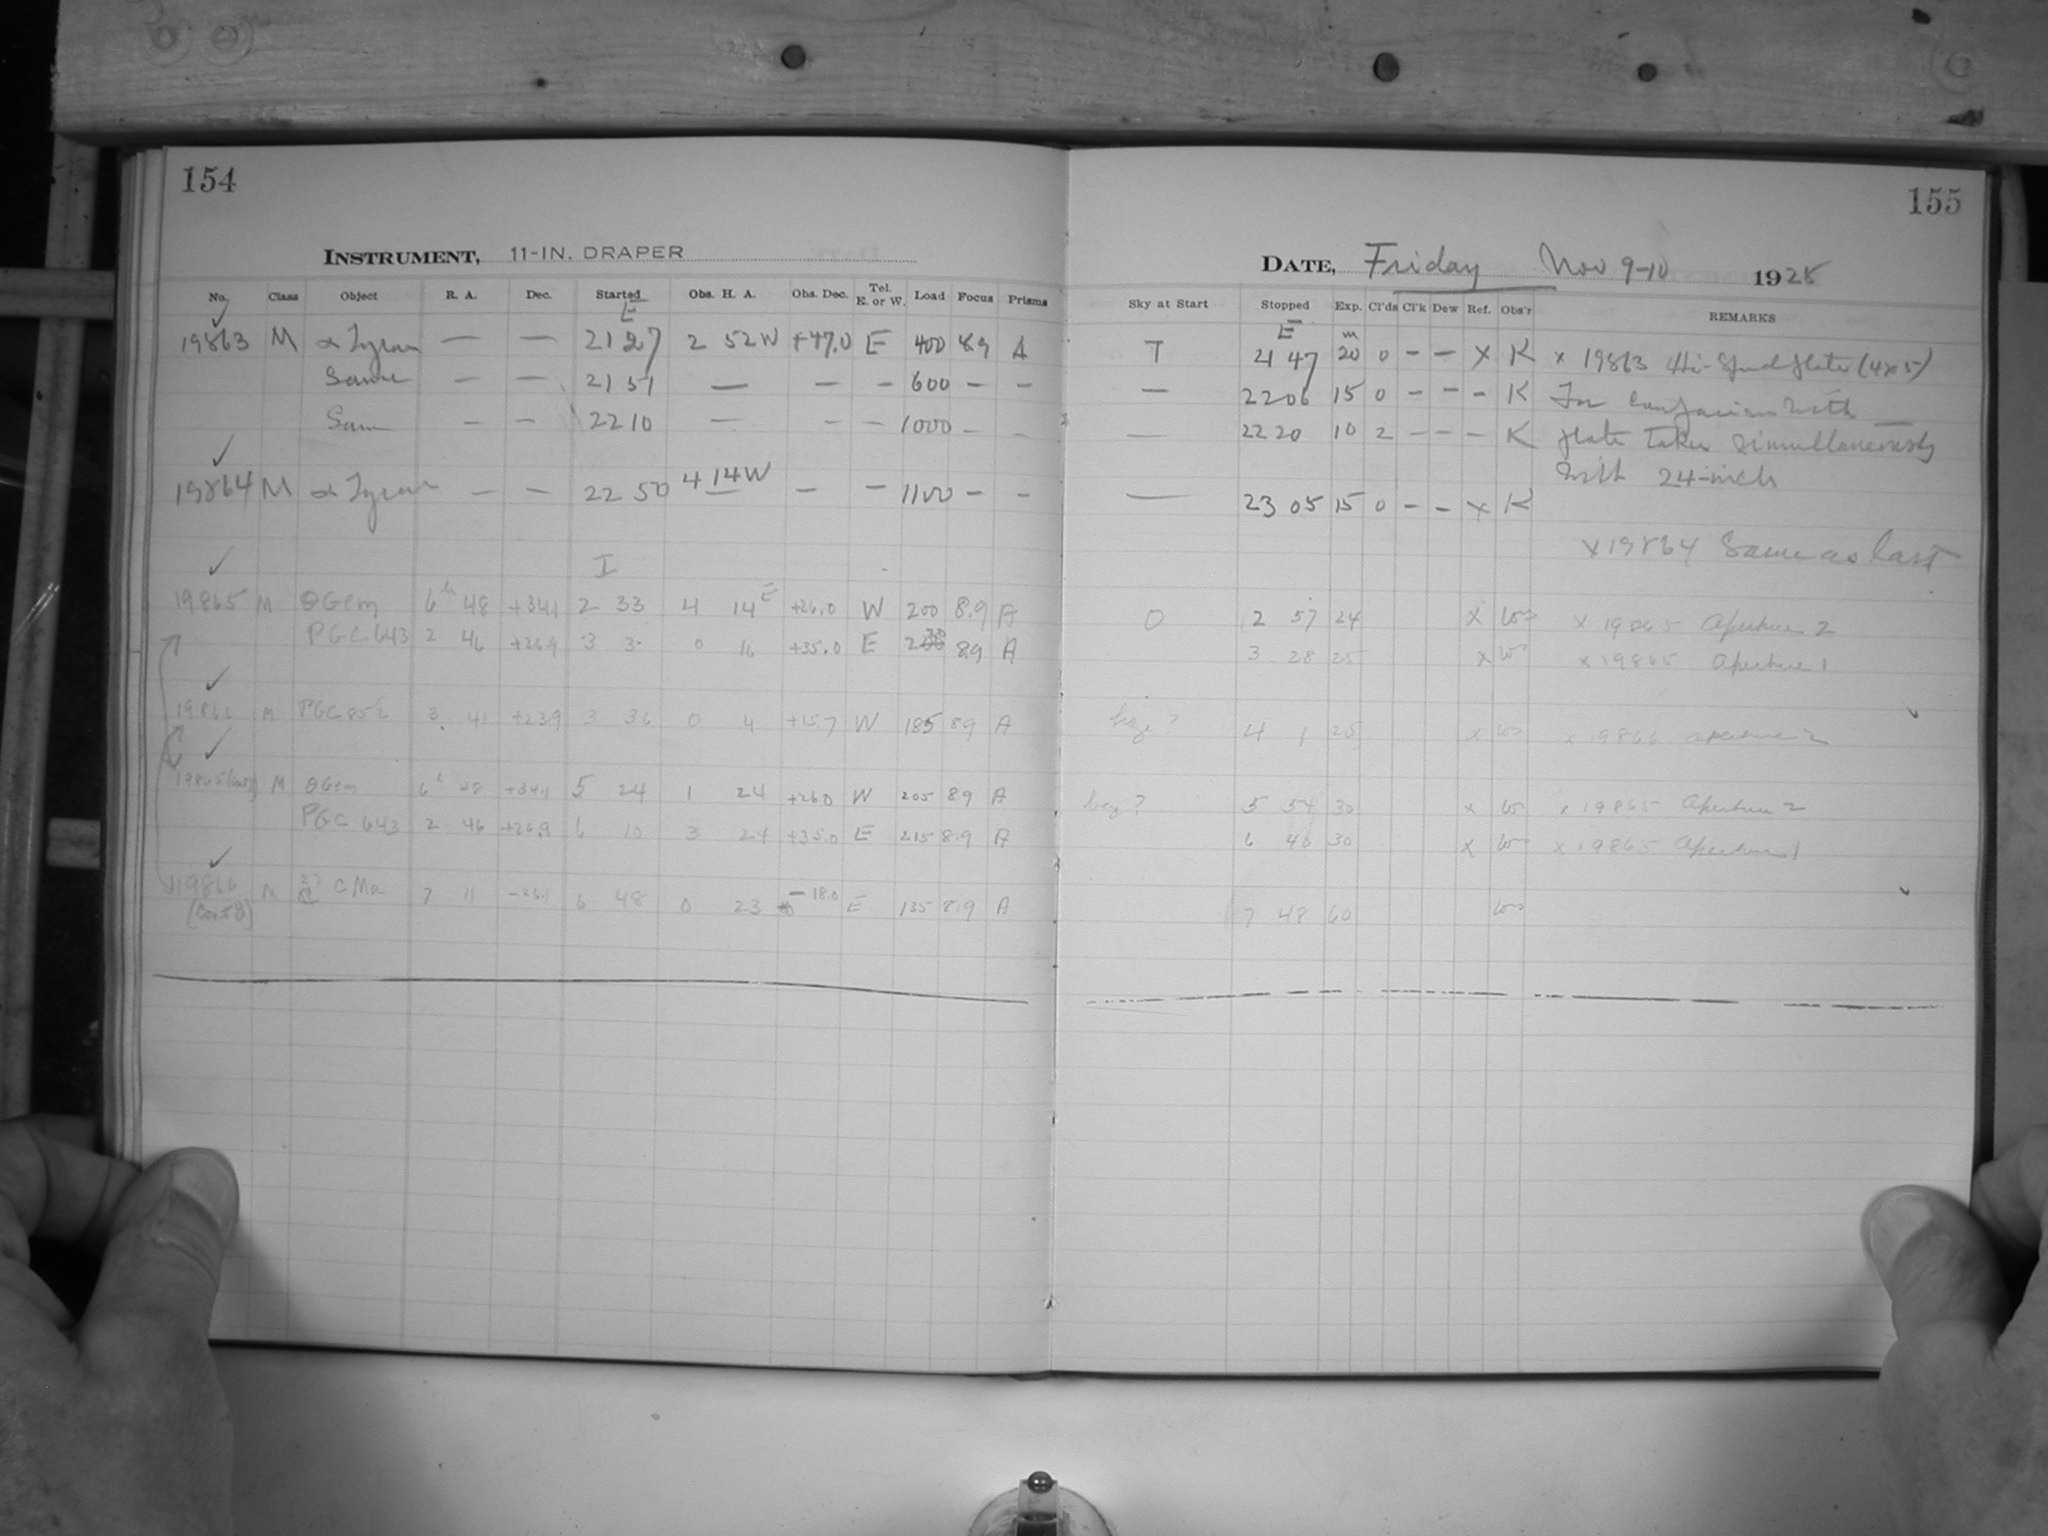 154
155
INSTRUMENT, 11-IN. DRAPER
DATE, Friday Nov 9-10 1928
No. Class Object R. A. Dec. Started Obs. H. A. Obs. Dec. Tel. E. or W. Load Focus Prisms Sky at Start Stopped Exp. Cl'ds Cl'k Dew Ref. Obs'r REMARKS
E E m
19863 M α Lyrae — — 21 27 2 52 W +47.0 E 400 8.9 A T 21 47 20 0 - - x K x 19863 Hi-Speed plate (4x5)
Same — — 21 51 — — — 600 - - — 22 06 15 0 - - - K For comparison with
Same — — 22 10 — — — 1000 - - — 22 20 10 2 - - - K plate taken simultaneously
with 24-inch
19864 M α Lyrae — — 22 50 4 14 W — — 1100 - - — 23 05 15 0 - - x K
x 19864 Same as last
I
19865 M θ Gem 6h 48 +34.1 2 33 4 14 E +26.0 W 200 8.9 A 0 2 57 24 x x 19865 Aperture 2
PGC 643 2 46 +26.9 3 3 0 16 +35.0 E 8.9 A 3 28 25 x x 19865 Aperture 1
19866 M PGC 852 3 41 +23.9 3 36 0 4 +15.7 W 185 8.9 A haze? 4 1 25 x x 19866 aperture 2
19865 (Cont'd) M θ Gem 6h 48 +34.1 5 24 1 24 +26.0 W 205 8.9 A haze? 5 54 30 x x 19865 Aperture 2
PGC 643 2 46 +26.9 6 10 3 24 +35.0 E 215 8.9 A 6 40 30 x x 19865 Aperture 1
19866 M 27 C Ma 7 11 -26.1 6 48 0 23 -18.0 E 135 8.9 A 7 48 60
(Cont'd)